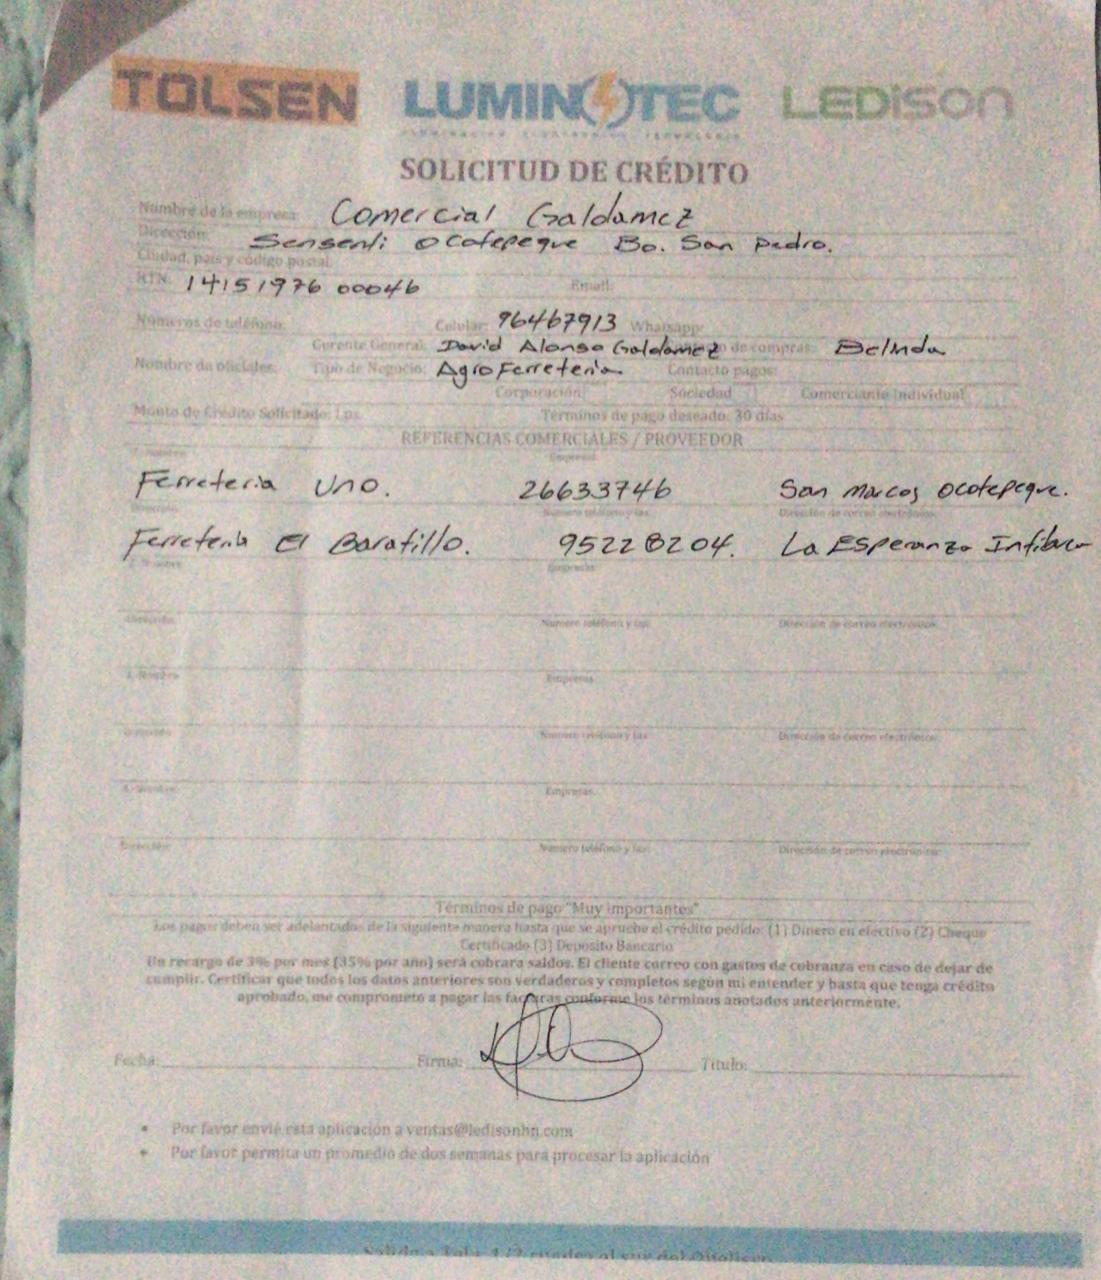 TOLSEN LUMINOTEC LEDISON
SOLICITUD DE CRÉDITO
Nombre de la empresa: Comercial Galdamez
Dirección: Sensenti Ocotepeque Bo. San Pedro.
Ciudad, país y código postal:
RTN: 14151976 00046 Email:
Números de teléfono: Celular: 96467913 Whatsapp:
Gerente General: David Alonso Galdamez de compras: Belinda
Nombre de oficiales: Tipo de Negocio: AgroFerreteria Contacto pagos:
Corporación Sociedad Comerciante Individual
Monto de Crédito Solicitado: Lps. Términos de pago deseado: 30 días
REFERENCIAS COMERCIALES / PROVEEDOR
1. Nombre Empresa:
Ferreteria Uno. 26633746 San Marcos Ocotepeque.
Dirección: Numero teléfono y fax: Dirección de correo electrónico:
Ferreteria El Baratillo. 95228204. La Esperanza Intibuca
2. Nombre Empresa:
Dirección: Numero teléfono y fax: Dirección de correo electrónico:
3. Nombre Empresa:
Dirección: Numero teléfono y fax: Dirección de correo electrónico:
4. Nombre Empresas:
Dirección: Numero teléfono y fax: Dirección de correo electrónico:
Términos de pago "Muy importantes"
Los pagos deben ser adelantados de la siguiente manera hasta que se apruebe el crédito pedido: (1) Dinero en efectivo (2) Cheque
Certificado (3) Deposito Bancario
Un recargo de 3% por mes (35% por año) será cobrara saldos. El cliente correo con gastos de cobranza en caso de dejar de
cumplir. Certificar que todos los datos anteriores son verdaderos y completos según mi entender y hasta que tenga crédito
aprobado, me comprometo a pagar las facturas conforme los términos anotados anteriormente.
Fecha: Firma: Título:
• Por favor envié esta aplicación a ventas@ledisonhn.com
• Por favor permita un promedio de dos semanas para procesar la aplicación